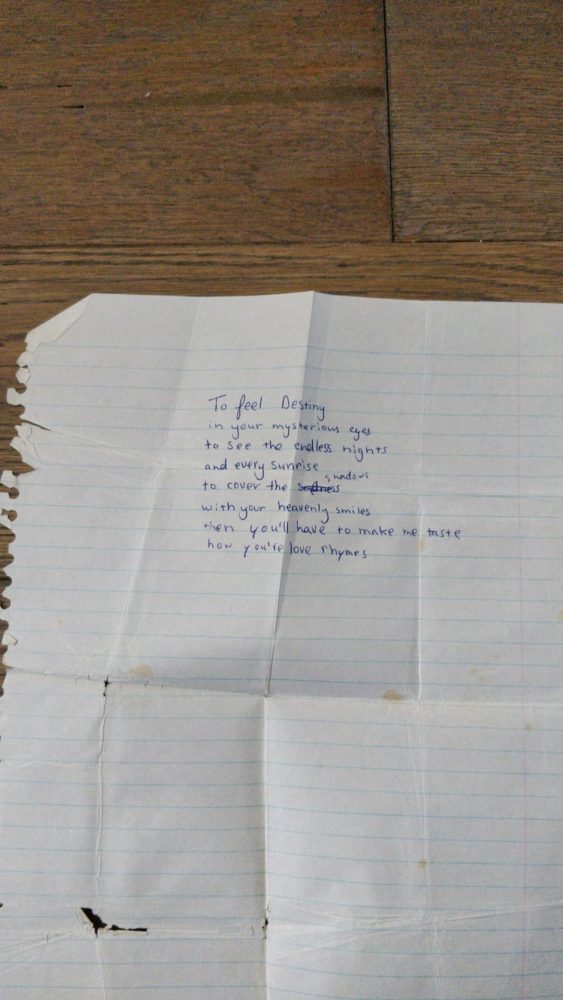 To feel Destiny
in your mysterious eyes
to see the endless nights
and every sunrise
shadows
to cover the
with your heavenly smiles
then you'll have to make me taste
how you're love rhymes